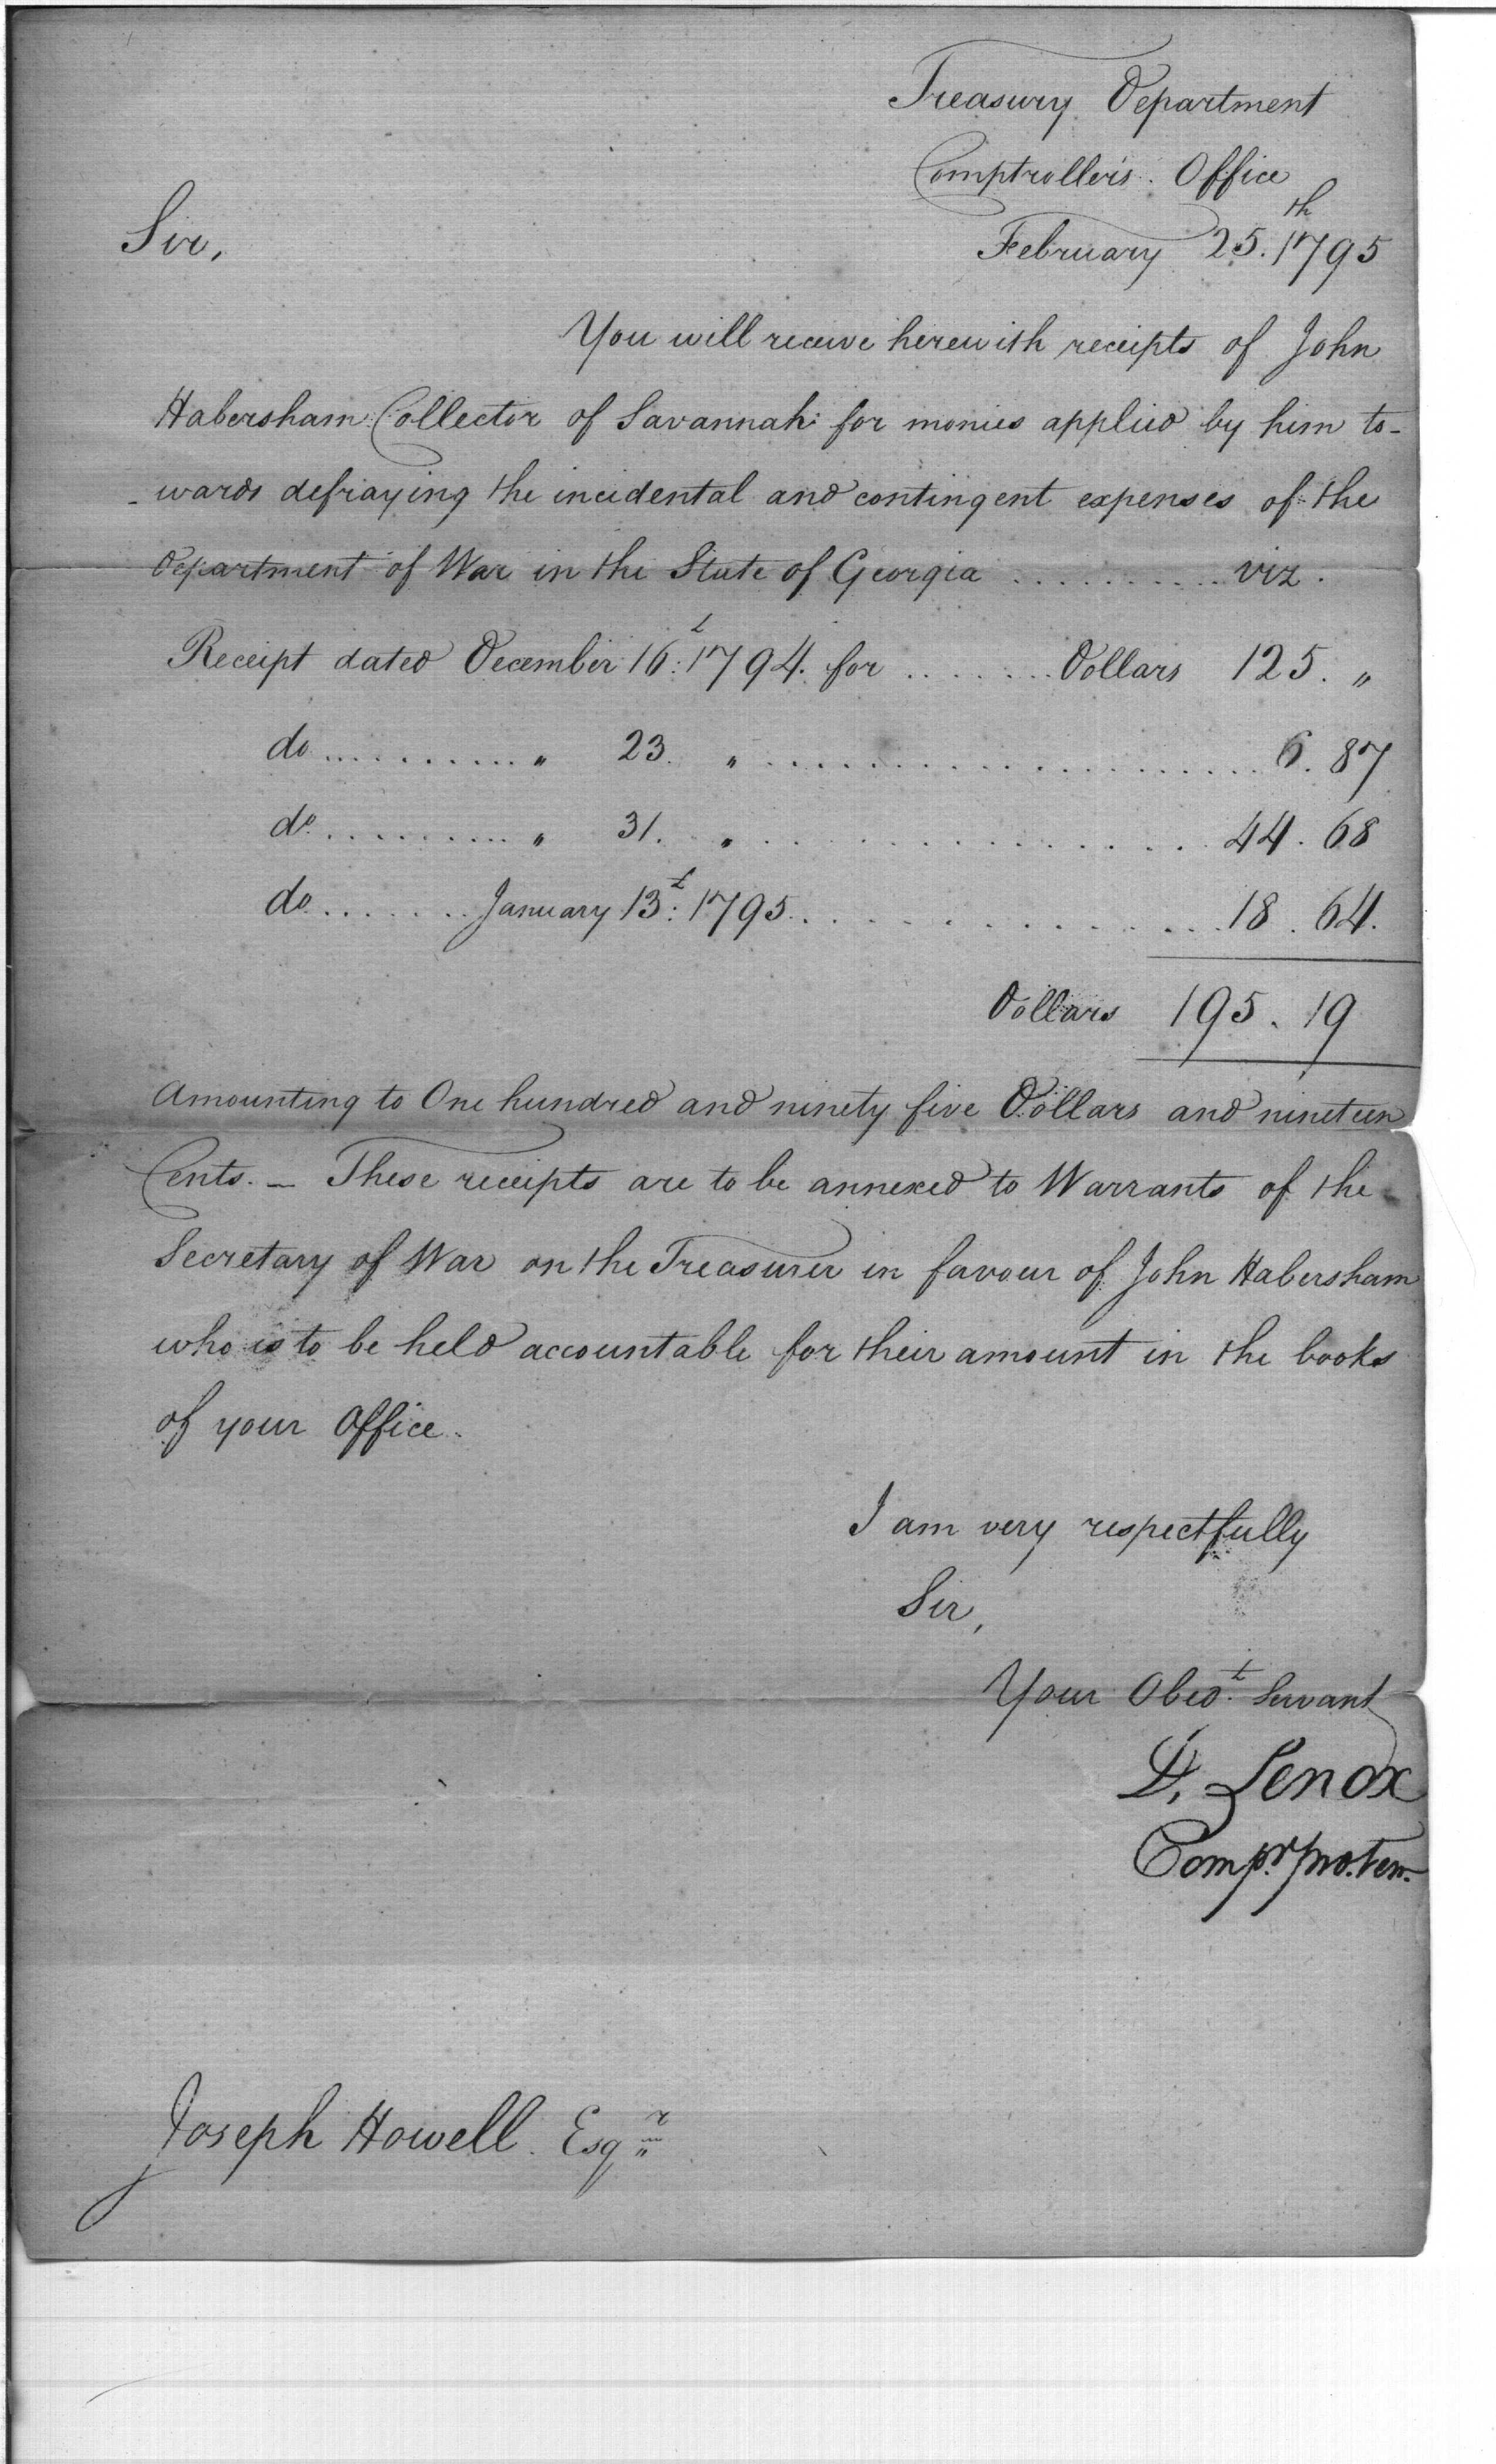 Treasury Department
Comptroller's Office
Sir,
February 25.th 1795
You will receive herewith receipts of John
Habersham Collector of Savannah for monies applied by him to-
-wards defraying the incidental and contingent expenses of the
department of War in the State of Georgia .......... viz.
Receipt dated December 16.t 1794. for ....... Dollars 125. "
do .......... " 23. " .................... 6. 87
do. .......... " 31. " .................... 44. 68
do ....... January 13.t 1795 .................... 18. 64.
Dollars 195. 19
Amounting to One hundred and ninety five Dollars and nineteen
Cents. — These receipts are to be annexed to Warrants of the
Secretary of War on the Treasurer in favour of John Habersham
who is to be held accountable for their amount in the books
of your Office.
I am very respectfully
Sir,
Your Obed.t Servant
D. Lenox
Comp.r pro. tem.
Joseph Howell Esq.r